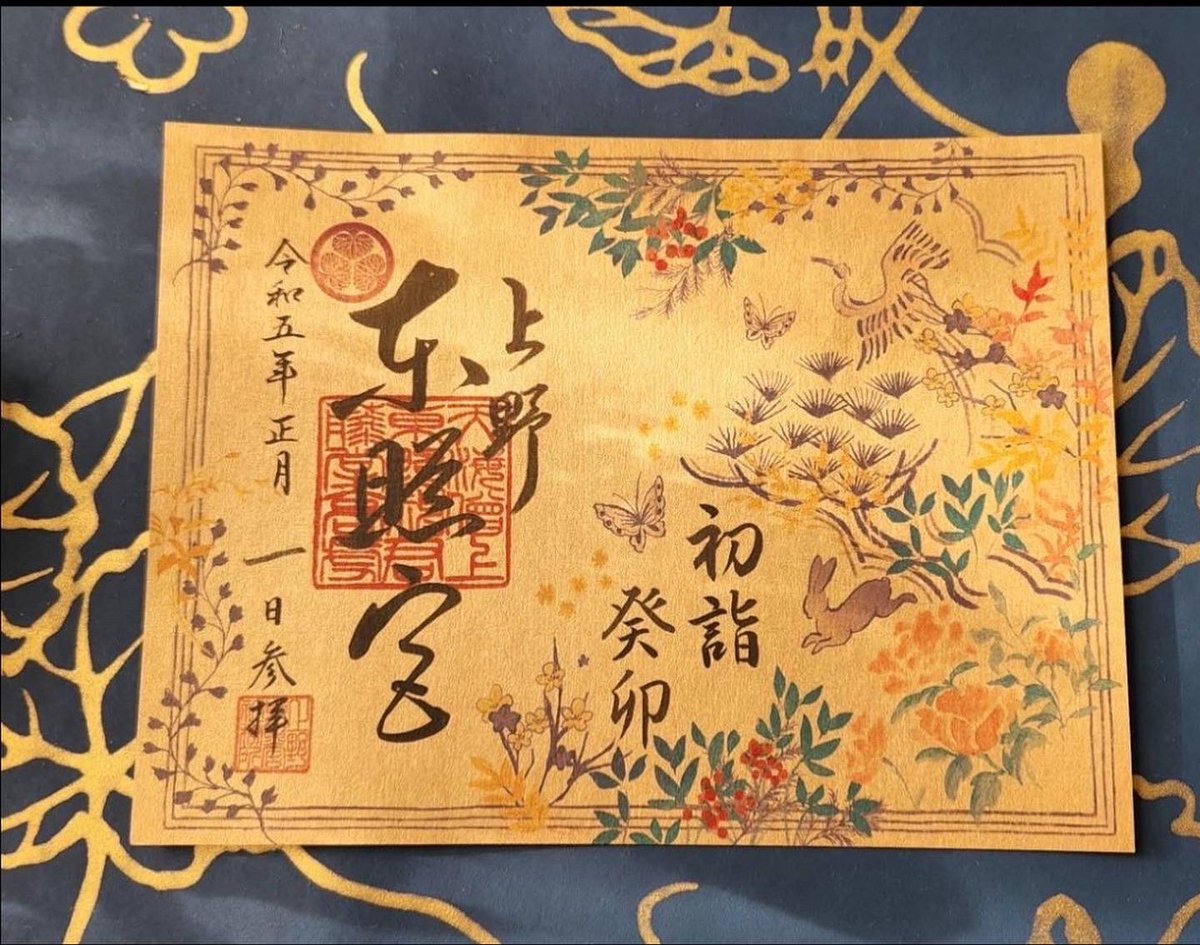 初詣
癸卯
上野
東照宮
令和五年正月一日参拝